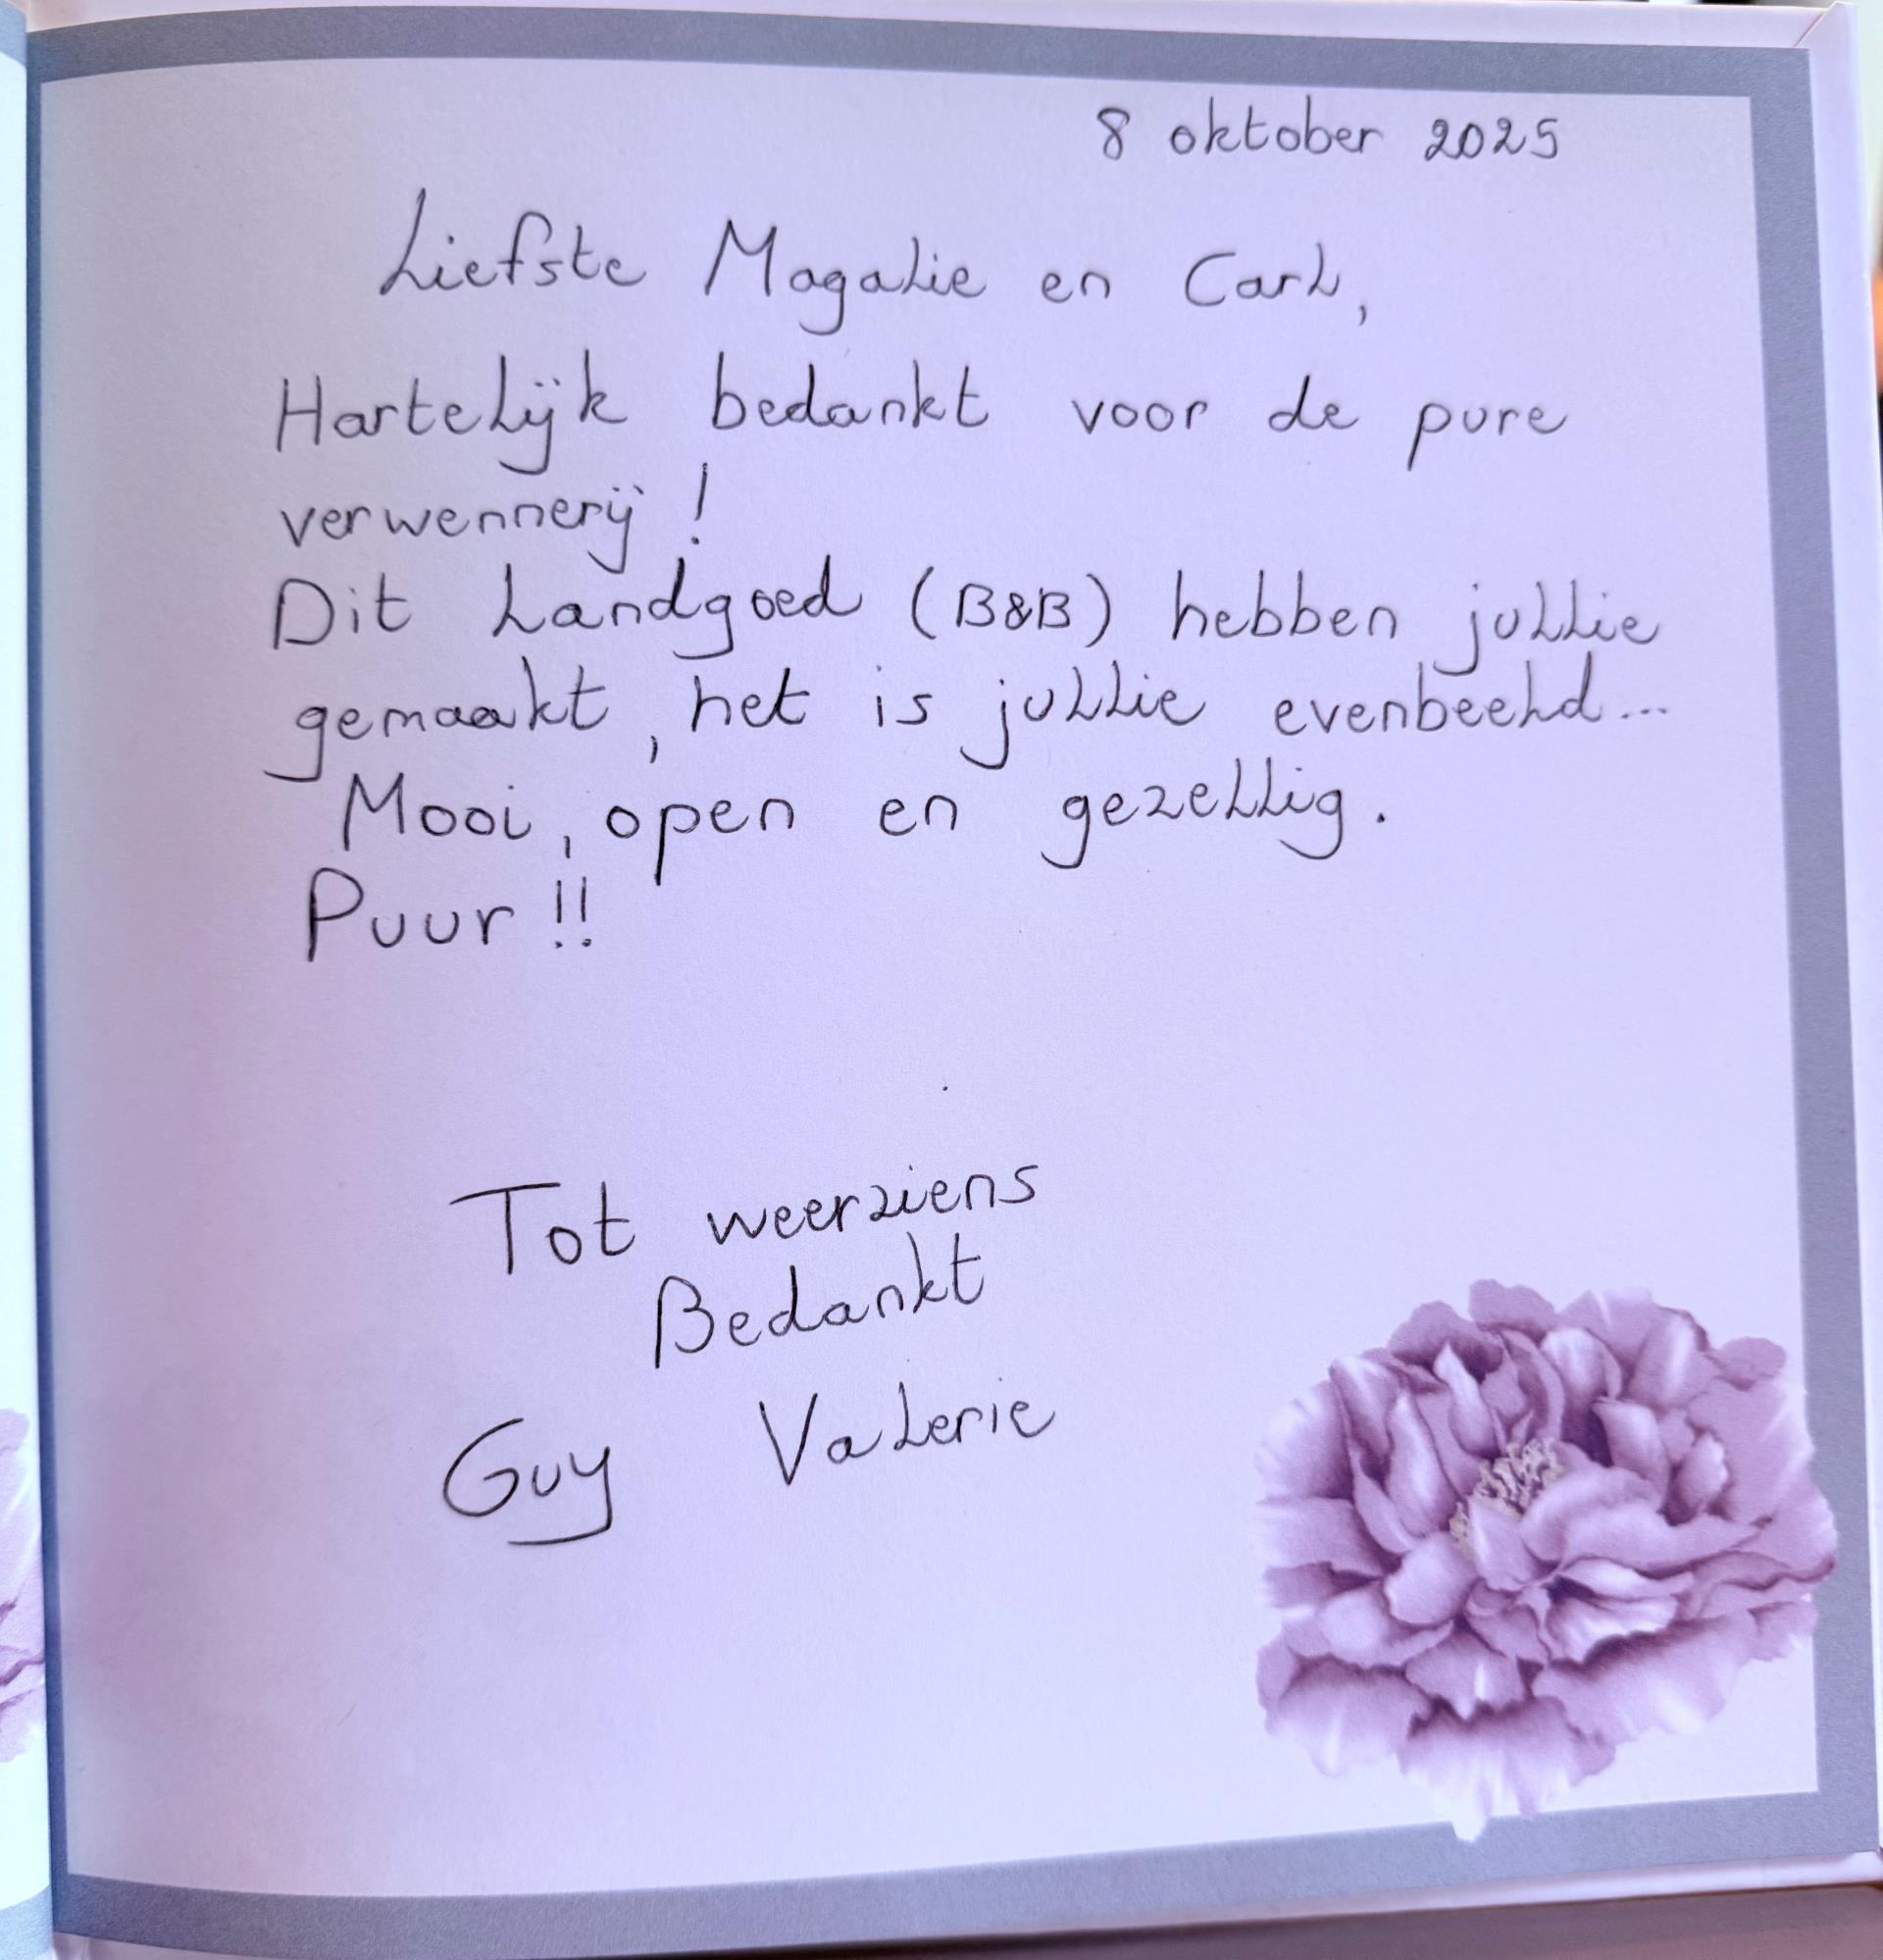 8 oktober 2025
Liefste Magalie en Carl,
Hartelijk bedankt voor de pure
verwennerij !
Dit Landgoed (B&B) hebben jullie
gemaakt, het is jullie evenbeeld...
Mooi, open en gezellig.
Puur !!
Tot weerziens
Bedankt
Guy Valerie